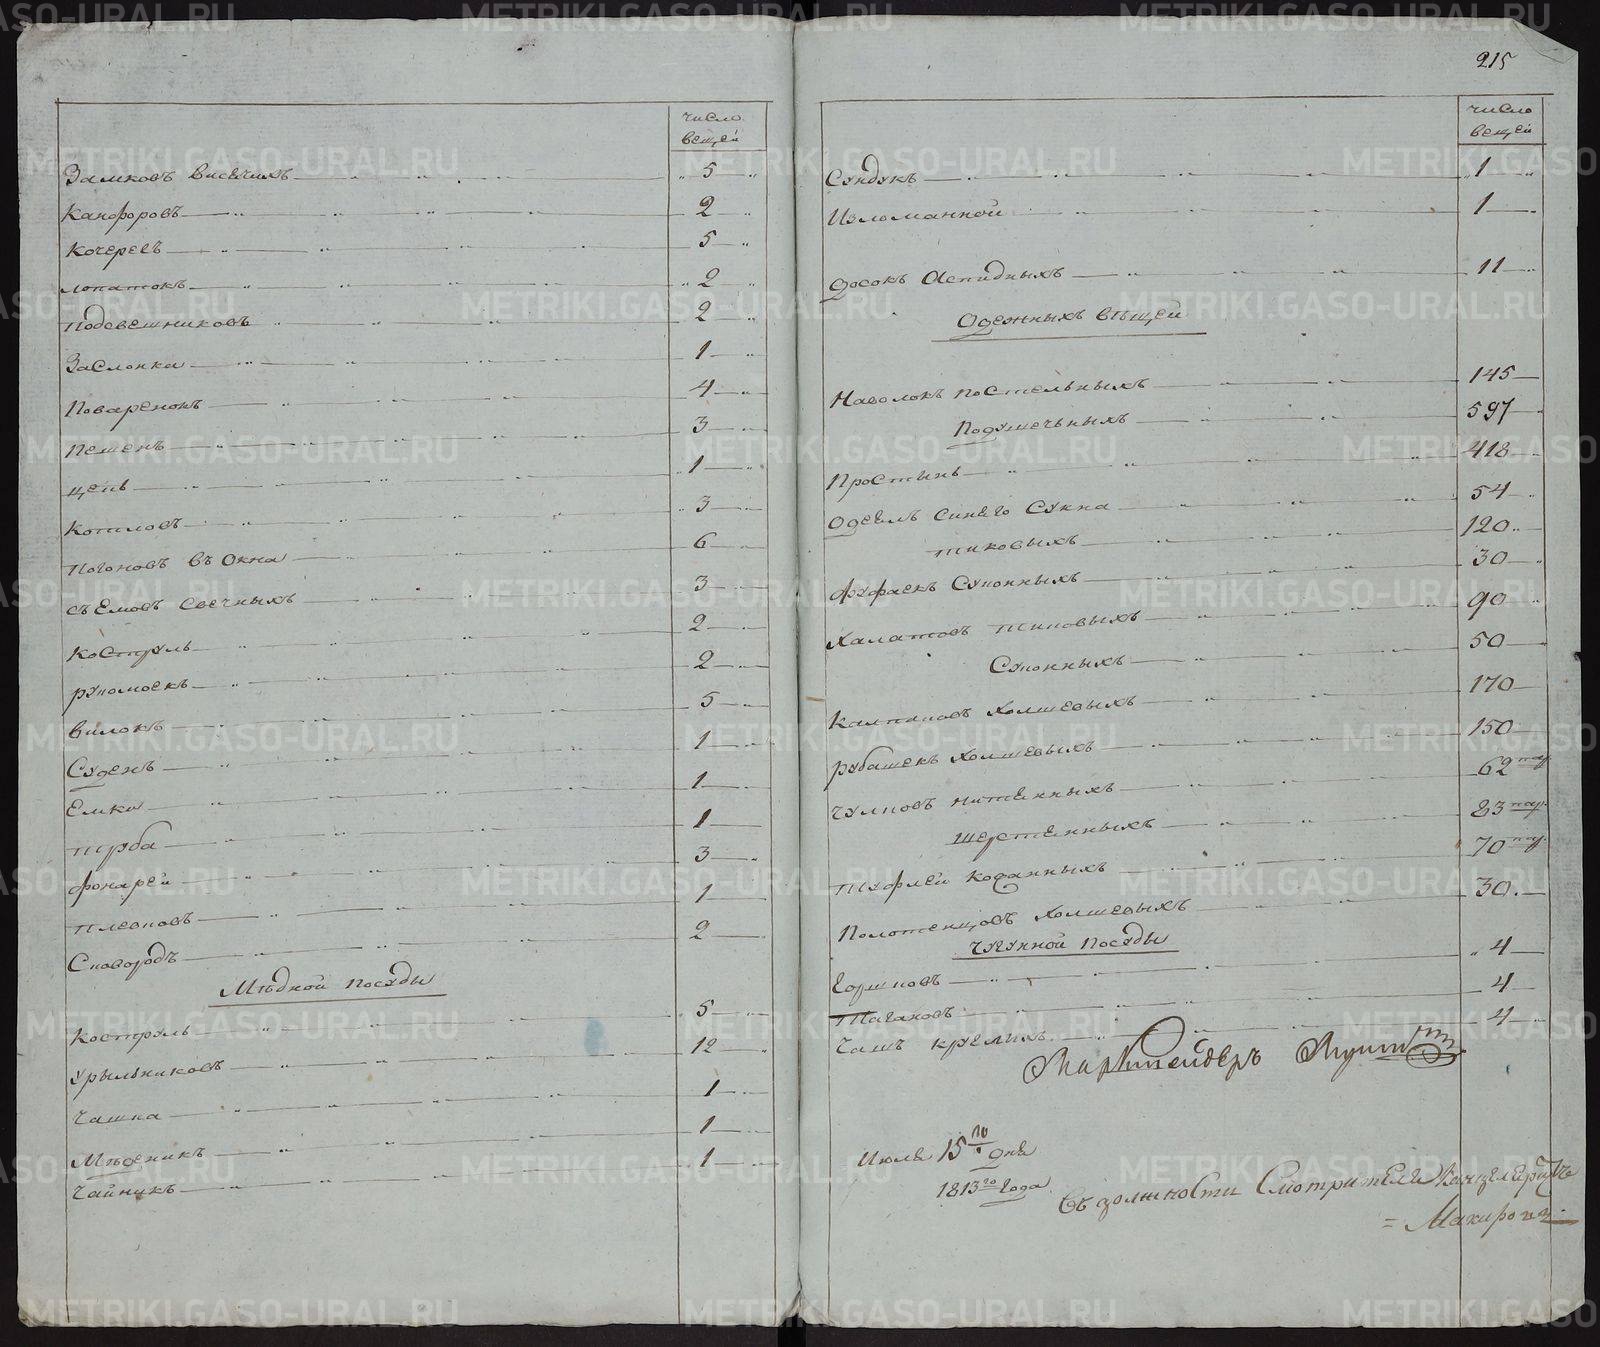 число
вещей
Замковъ висячихъ 5
Канфоровъ 2
Кочерегъ 5
лопатокъ 2
Подсвешниковъ 2
Заслонка 1
Поваренокъ 4
Пешенъ 3
цепь 1
Котловъ 3
Погоновъ въ окна 6
съемовъ свечныхъ 3
Коструль 2
рукомоекъ 2
вилокъ 5
Суденъ 1
Емка 1
труба 1
фонарей 3
1
Сковородъ 2
Мѣдной посуды
Кострюль 5
Урыльниковъ 12
Чашка 1
Мѣденикъ 1
Чайникъ 1
215
число
вещей
Сундукъ 1
Изломанной 1
Досокъ аспидныхъ 11
Одежныхъ вѣщей
Наволокъ постельныхъ 145
Подушечьныхъ 597
Простынь 418
Одеялъ синего сукна 54
тиковыхъ 120
фуфаекъ суконныхъ 30
Халатовъ тиковыхъ 90
Суконныхъ 50
Калпаковъ холшевыхъ 170
рубашекъ холшевыхъ 150
Чулковъ нитянныхъ 62 пар
шерстянныхъ 83 пар.
туфлей кожанныхъ 70 пар
Полотенцовъ холшевыхъ 30
Чугунной посуды
Горшковъ 4
Тагановъ 4
Чашъ 4
Маркшейдеръ
Июля 15го дня
1813го года
Въ должности Смотрителя Канцеляристъ
= Макаровъ
METRIKI.GASO-URAL.RU